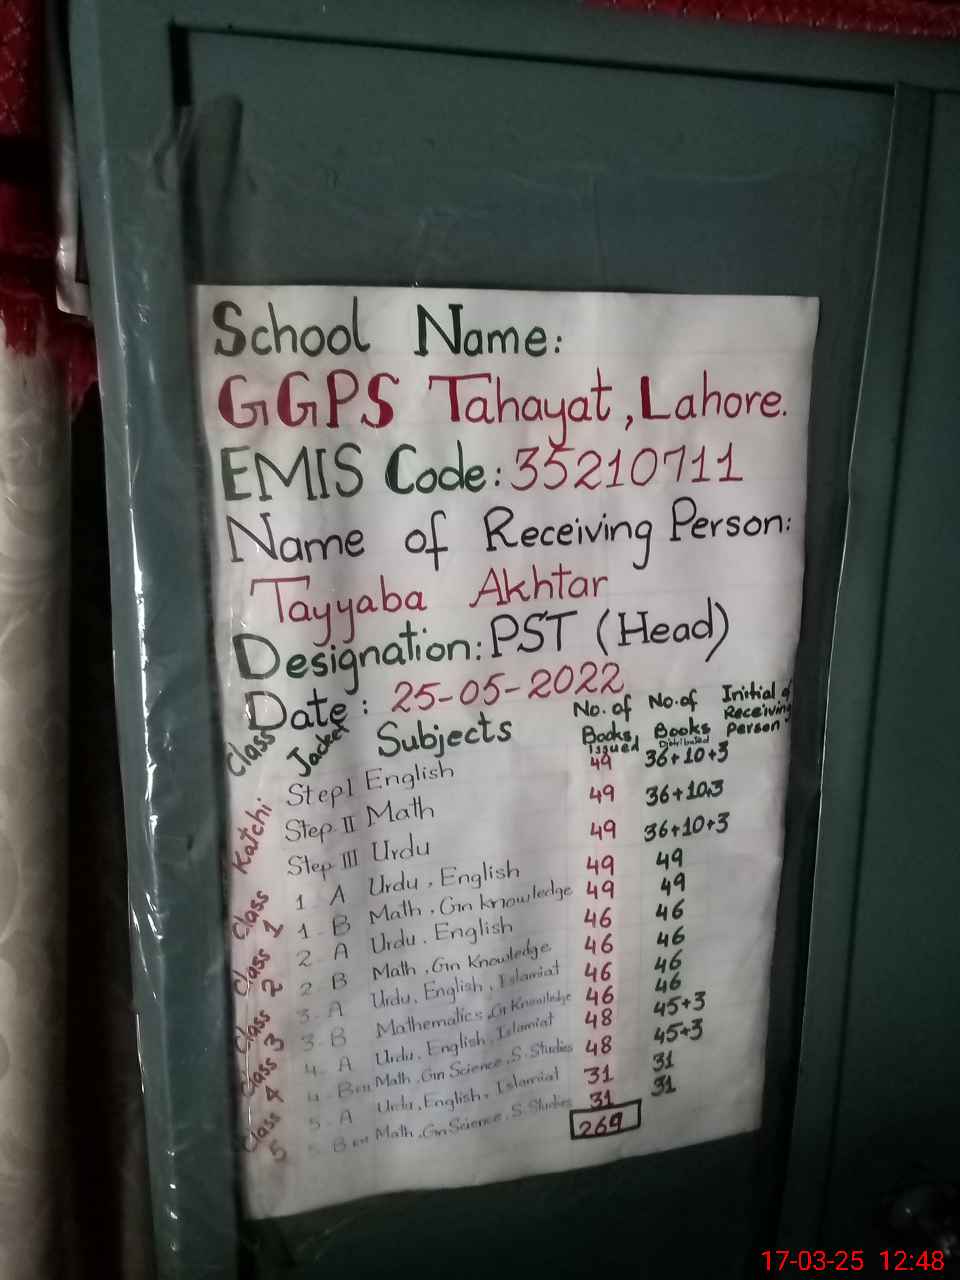 School Name:
GGPS Tahayat, Lahore.
EMIS Code: 35210711
Name of Receiving Person:
Tayyaba Akhtar
Designation: PST (Head)
Date: 25-05-2022
Class Jacket Subjects No. of Books Issued No. of Books Distributed Initial of Receiving Person
Katchi
Step I English 49 36+10+3
Step II Math 49 36+10+3
Step III Urdu 49 36+10+3
Class 1
1 A Urdu, English 49 49
1-B Math, Gn knowledge 49 49
Class 2
2-A Urdu, English 46 46
2 B Math, Gn Knowledge 46 46
Class 3
3-A Urdu, English, Islamiat 46 46
3-B Mathematics, Gn Knowledge 46 46
Class 4
4-A Urdu, English, Islamiat 48 45+3
4-B Math, Gn Science, S. Studies 48 45+3
Class 5
5-A Urdu, English, Islamiat 31 31
5 B Math, Gn Science, S. Studies 31 31
269
17-03-25 12:48